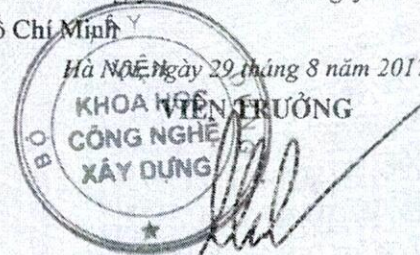 Chí Minh
Hà Nội, ngày 29 tháng 8 năm 201
VIỆN TRƯỞNG
VIỆN
KHOA HỌC
CÔNG NGHỆ
XÂY DỰNG
BỘ